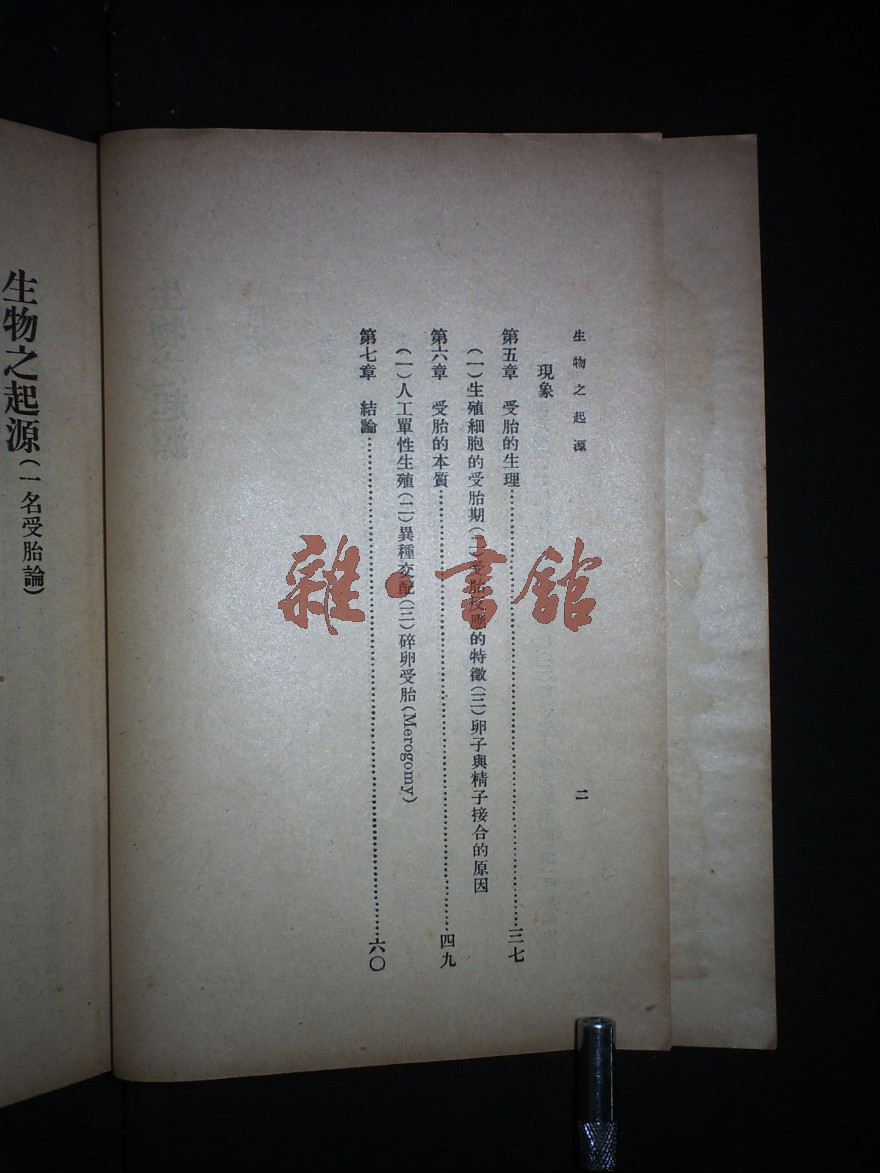 生物之起源
二
現象
第五章 受胎的生理……三七
(一)生殖細胞的受胎期(二)受胎反應的特徵(三)卵子與精子接合的原因
第六章 受胎的本質……四九
(一)人工單性生殖(二)異種交配(三)碎卵受胎(Merogomy)
第七章 結論……六〇
生物之起源(一名受胎論)
雜·書館